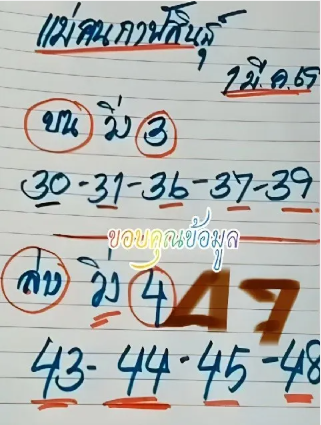 แม่คนกาฬสินธุ์
1 มี.ค. 69
บน วิ่ง 3
30-31-36-37-39
ขอบคุณข้อมูล
ล่าง วิ่ง 4 47
43-44-45-48